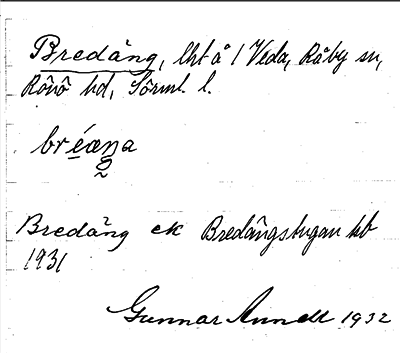 Bredäng, lht å 1 Veda, Råby sn,
Rönö hd, Sörml. l.
bréæna
Bredäng ek Bredängstugan kb
1931
Gunnar 1932